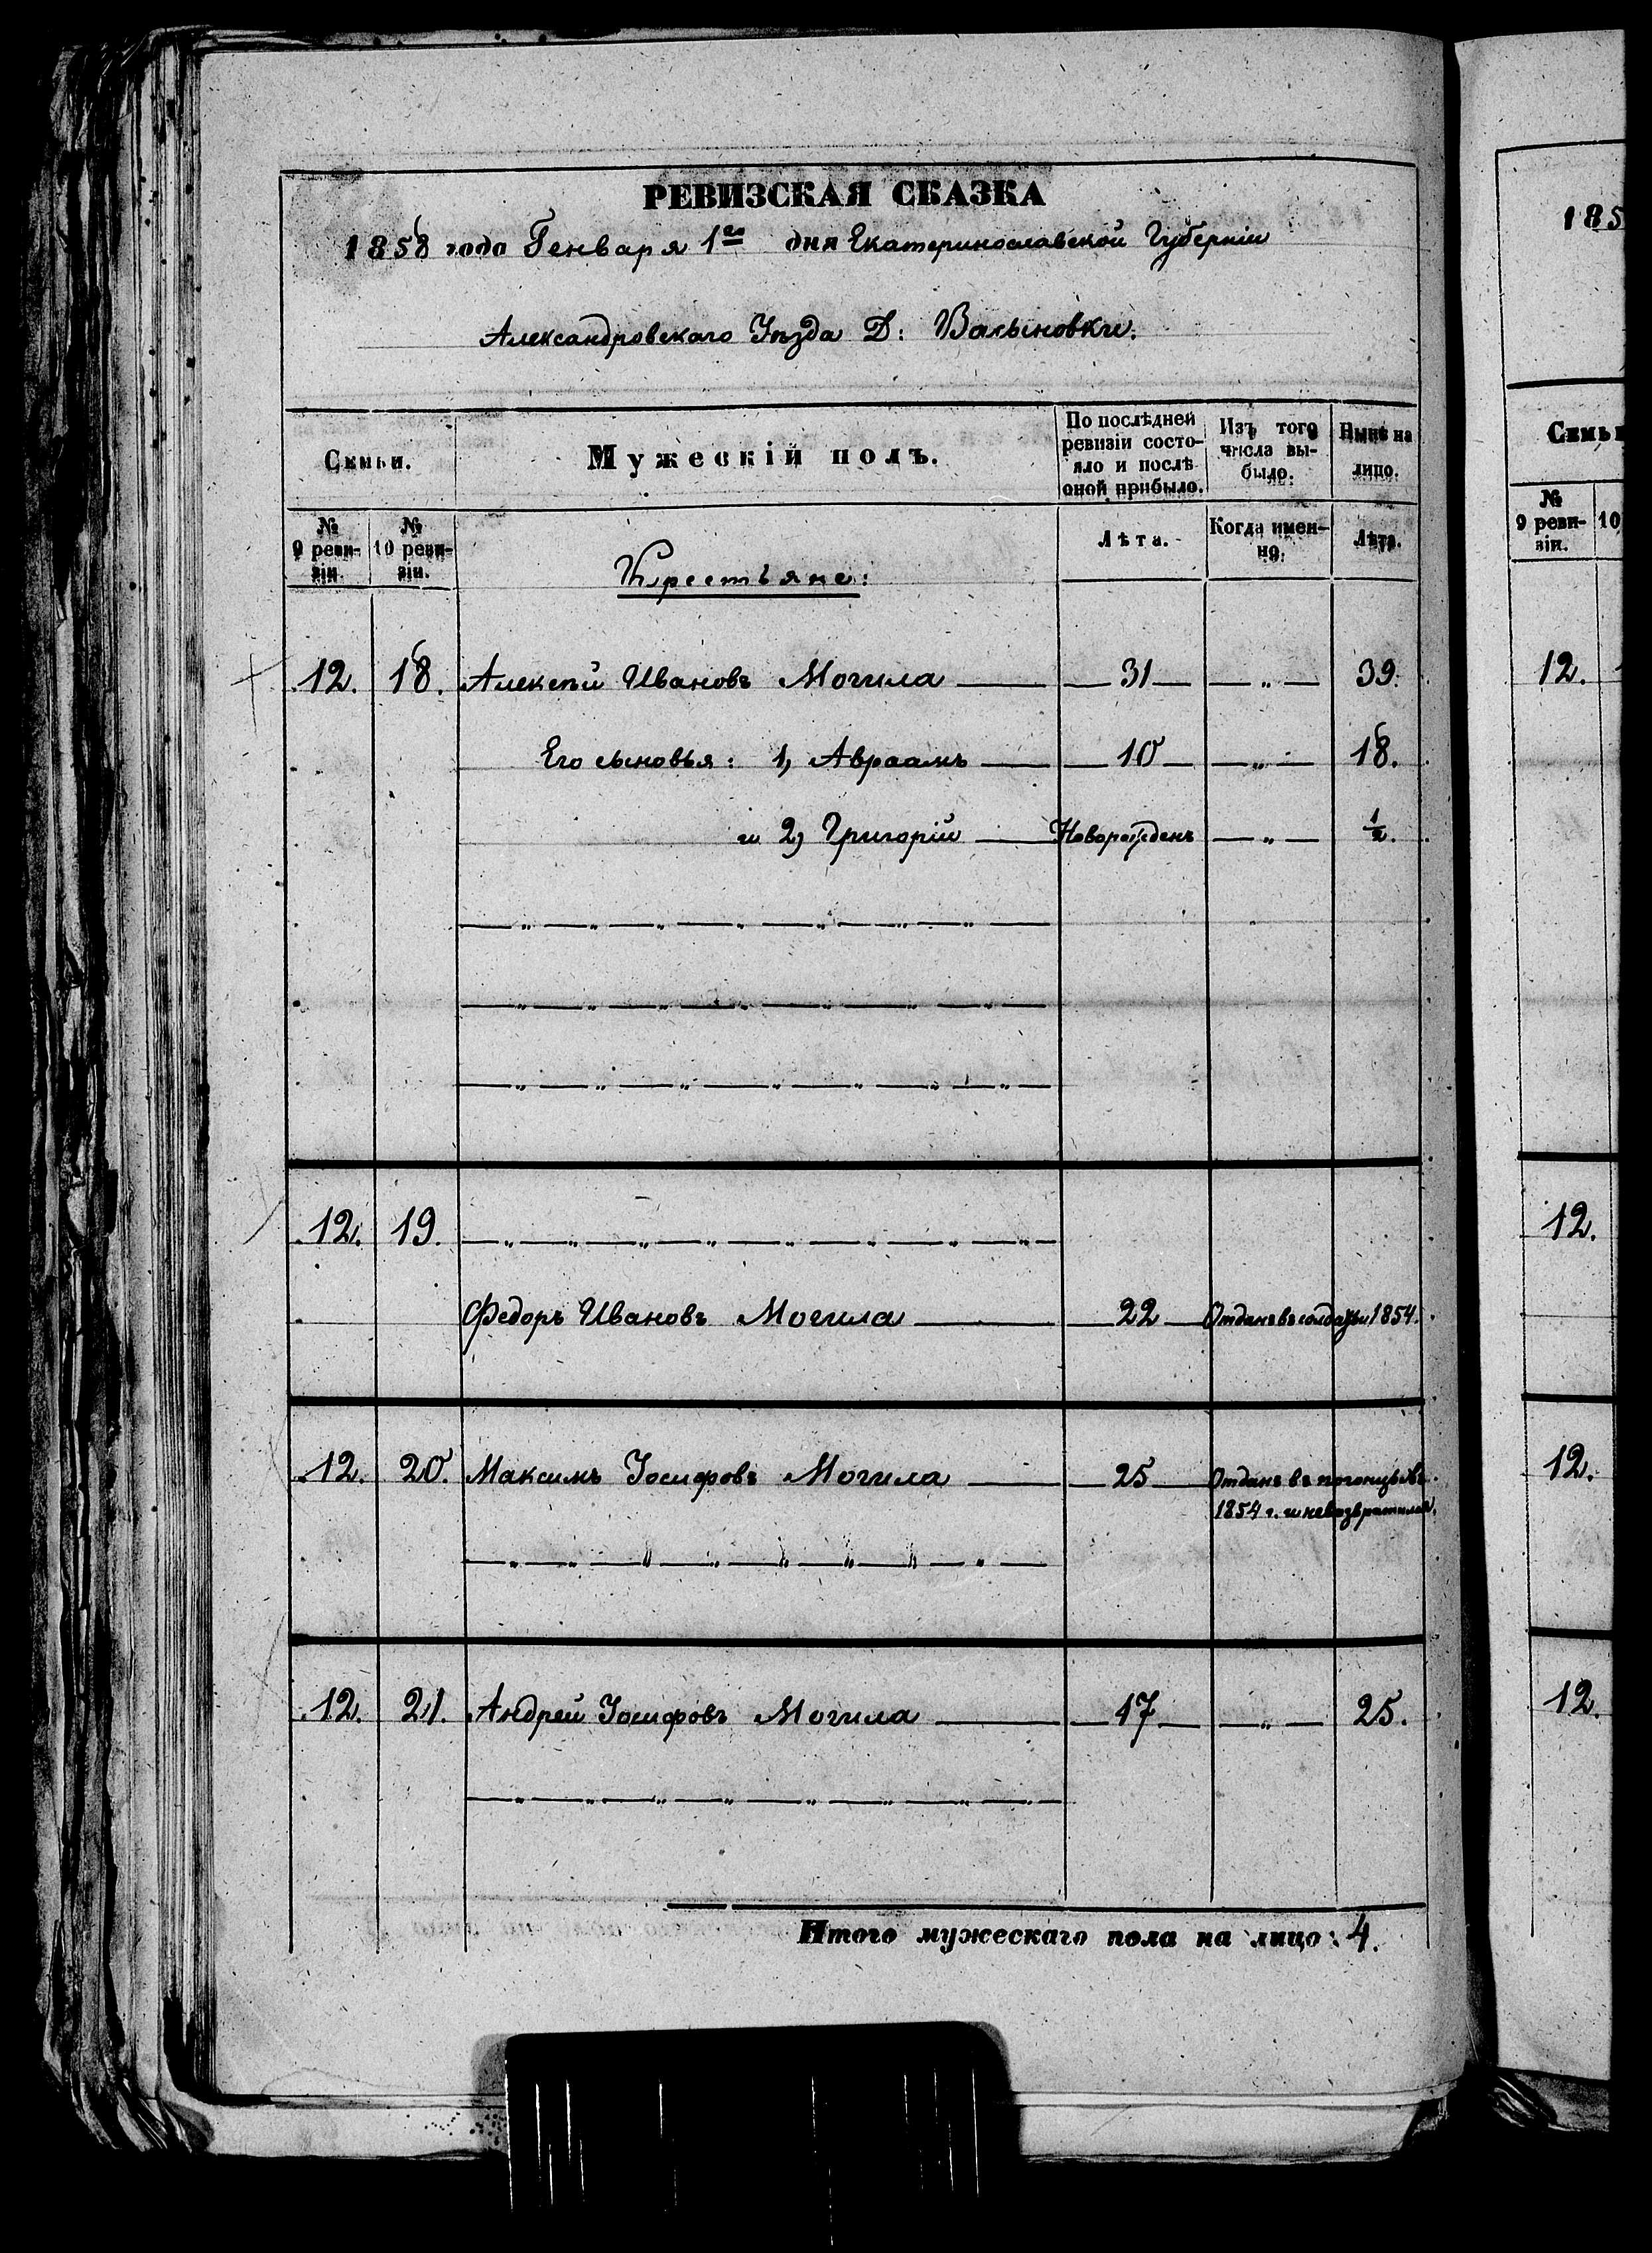 РЕВИЗСКАЯ СКАЗКА
1858 года Генваря 1го дня Екатеринославской Губерніи
Александровскаго Уѣзда Д:
Семьи.
Мужескій полъ.
По послѣдней ревизіи состояло и послѣ оной прибыло.
Изъ того числа выбыло.
Нынѣ на лицо.
№ 9 ревизіи.
№ 10 ревизіи.
Крестьяне:
Лѣта.
Когда именно.
Лѣта.
12. 18. Алексѣй Ивановъ Могила — 31 — „ — 39.
Его сыновья: 1, Авраамъ — 10 — „ — 18.
и 2, Григорій — Новорожденъ — „ — 1/2.
12. 19.
Федоръ Ивановъ Могила — 22 — Отданъ въ солдаты 1854.
12. 20. Максимъ Іосифовъ Могила — 25 — Отданъ въ погонцы въ
1854 г. и невозвратился.
12. 21. Андрей Іосифовъ Могила — 17 — „ — 25.
Итого мужескаго пола на лицо: 4.
185
Семьи
№ 9 ревизіи.
10
12.
12.
12.
12.